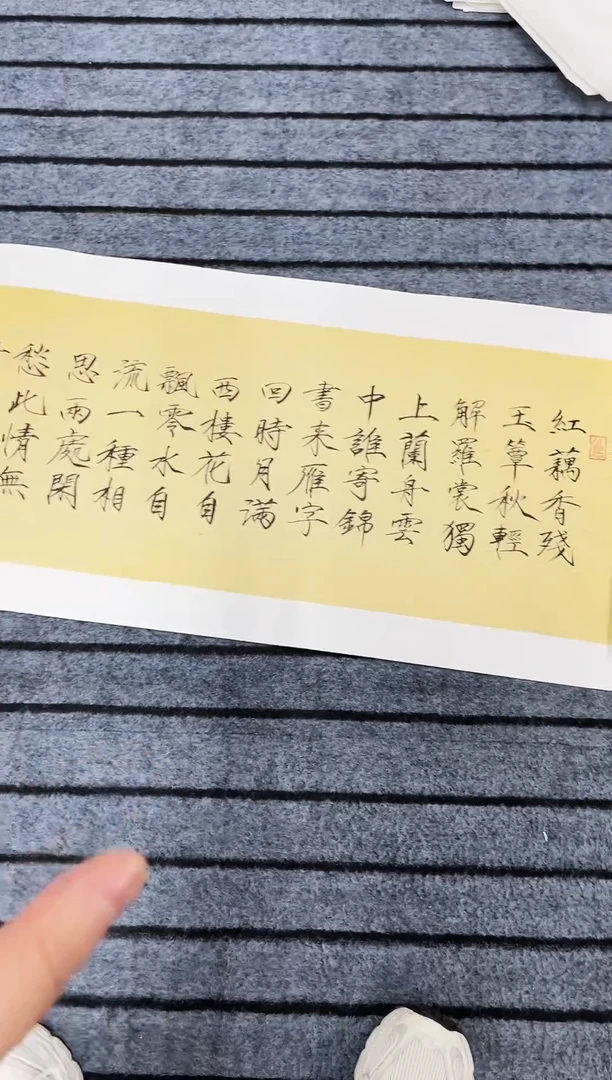 紅藕香殘
玉簟秋輕
解羅裳獨
上蘭舟雲
中誰寄錦
書来雁字
回時月滿
西樓花自
飄零水自
流一種相
思兩處閑
愁此情無